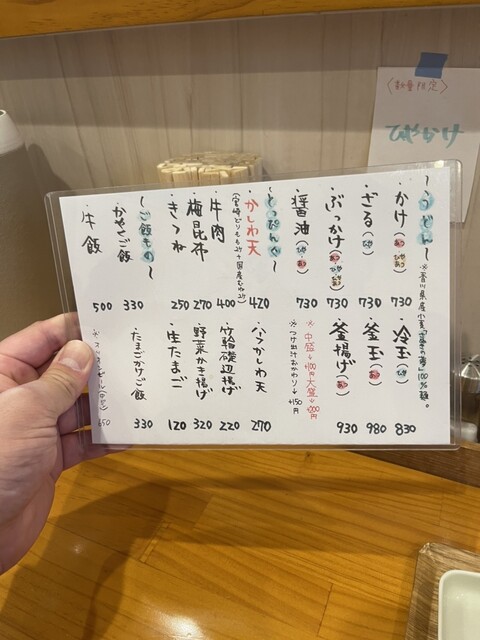 〈数量限定〉
ひやかけ
〜うどん〜
※香川県産小麦「さぬきの夢」100%麺。
・かけ(あつ ひやあつ) 730
・ざる(ひや) 730
・ぶっかけ(あつ ひや) 730
・醤油(ひや・あつ) 730
・冷玉(ひや) 830
・釜玉(あつ) 980
・釜揚げ(あつ) 930
※中盛↓+100円大盛↓+200円
※つけ出汁おかわり↓+150円
〜とっぴんぐ〜
・かしわ天 420
・牛肉 400
・梅昆布 270
・きつね 250
・ハーフかしわ天 270
・竹輪磯辺揚げ 220
・野菜かき揚げ 320
・生たまご 120
〜ご飯もの〜
・かやくご飯 330
・牛飯 500
・たまごかけご飯 330
650